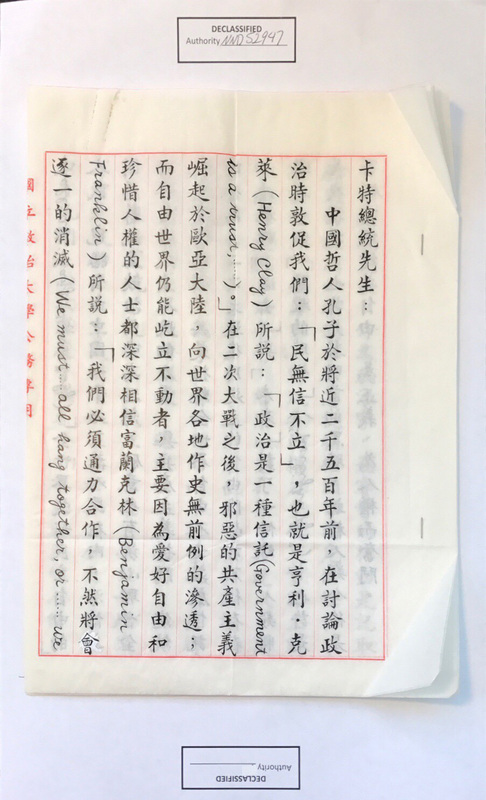 DECLASSIFIED
Authority NND52947
卡特總統先生：
中國哲人孔子於將近二千五百年前，在討論政
治時敦促我們：「民無信不立」，也就是亨利．克
萊（Henry Clay）所說：「政治是一種信託(Government
is a trust,……）。」在二次大戰之後，邪惡的共產主義
崛起於歐亞大陸，向世界各地作史無前例的滲透；
而自由世界仍能屹立不動者，主要因為愛好自由和
珍惜人權的人士都深深相信富蘭克林（Benjamin
Franklin）所說：「我們必須通力合作，不然將會
逐一的消滅（We must……all hang together, or……we
國立政治大學公務專用
DECLASSIFIED
Authority